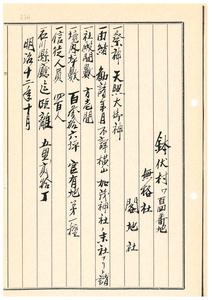 鉢伏村ワ百四番地
無格社
閣地社
一祭神 天照大御神
一由緒 勧請年月不詳横山加茂神社ノ末社ナリト諸
一社殿間数 方壱間
一境内坪数 百参拾六坪 官有地第一種
一信徒人員 四百人
石川縣廳迄距離 五里参拾丁
明治十二年月